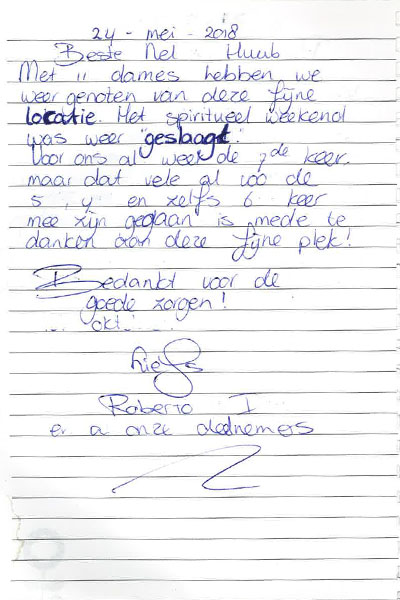 24 - mei - 2018
Beste Nel Huub
Met 11 dames hebben we
weer genoten van deze fijne
locatie. Het spiritueel weekend
was weer "geslaagt".
Voor ons al weer de 7de keer.
maar dat vele al voo de
5, 4 en zelfs 6 keer
mee zijn gegaan is mede te
danken aan deze fijne plek!
Bedankt voor de
goede zorgen!
okt
Liefs
Roberto I
en a onze deelnemers